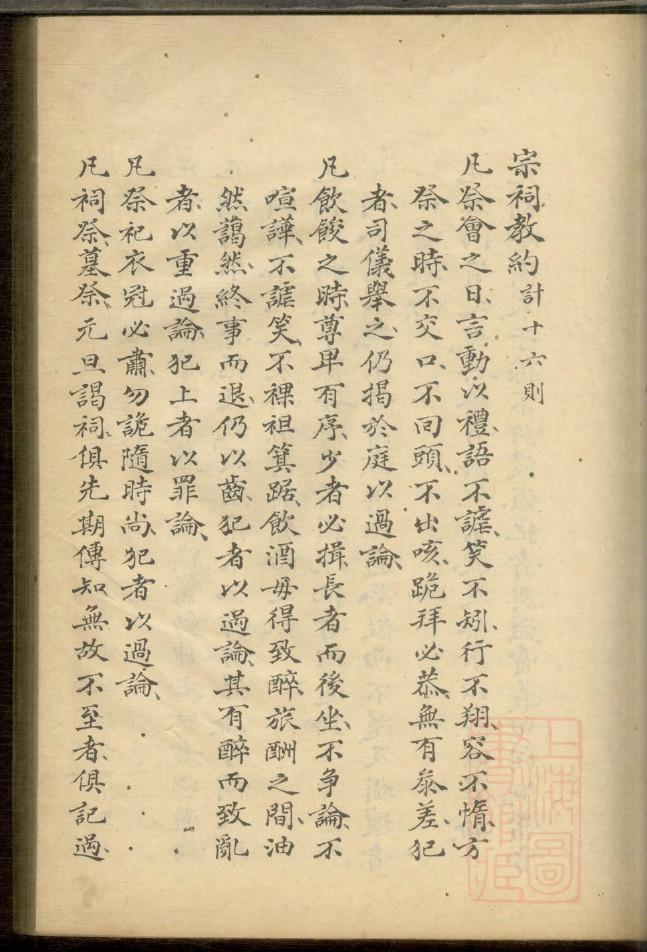 宗祠教約計十六則
凡祭會之日言動以禮語不謔笑不矧行不翔容不惰方
祭之時不交口不回頭不出咳跪拜必恭無有參差犯
者司儀舉之仍揭於庭以過論
凡飲餕之時尊卑有序少者必揖長者而後坐不争論不
喧譁不謔笑不裸袒箕踞飲酒毋得致醉旅酬之間油
然藹然終事而退仍以齒犯者以過論其有醉而致亂
者以重過論犯上者以罪論
凡祭祀衣冠必肅勿詭隨時尚犯者以過論
凡祠祭墓祭元旦謁祠俱先期傳知無故不至者俱記過
上海圖書館藏